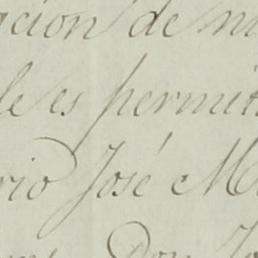 acion de m
le es permit
rio José M
Don Jo